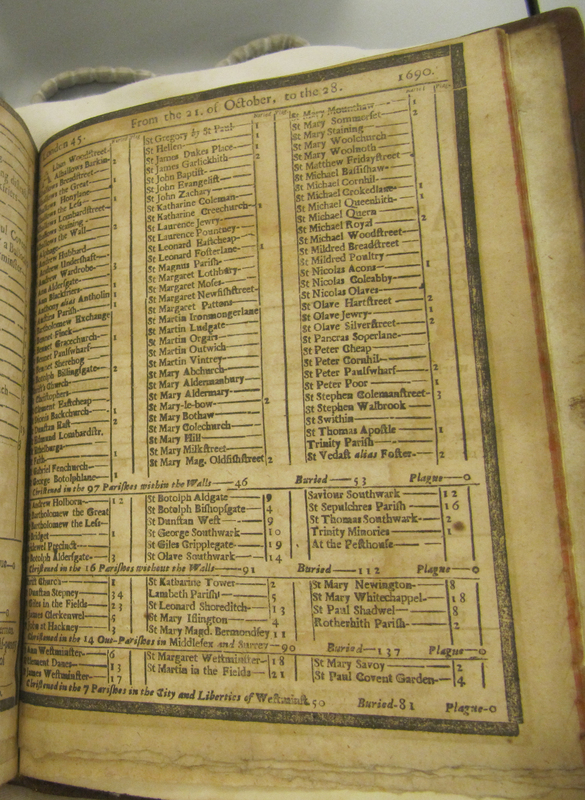 London 45. From the 21. of October, to the 28. 1690.
Buried Plag.
Alban Woodstreet
Alhallows Barkin 2
Breadstreet
Great 1
Honylane
Less 1
Lombardstreet
Staining 2
the Wall
Hubbard
Undershaft
Wardrobe 3
Aldersgate 1
Blackfriers 1
alias Antholin 1
Parish 1
Bartholomew Exchange
Bennet Finck
Bennet Gracechurch 1
Bennet Paulswharf 2
Bennet Sherehog
Botolph Billingsgate 2
Church
Christophers
Clement Eastcheap
Dionis Backchurch 1
Dunstan East 2
Edmund Lombardstr.
Ethelburga
Faith 1
Gabriel Fenchurch
George Botolphlane 1
St Gregory by St Paul 1
St Hellen 1
St James Dukes Place 1
St James Garlickhith 2
St John Baptist
St John Evangelist
St John Zachary
St Katharine Coleman
St Katharine Creechurch 1
St Laurence Jewry
St Laurence Pountney
St Leonard Eastcheap
St Leonard Fosterlane 1
St Magnus Parish
St Margaret Lothbury
St Margaret Moses
St Margaret Newfishstreet
St Margaret Pattons
St Martin Ironmongerlane
St Martin Ludgate
St Martin Orgars
St Martin Outwich
St Martin Vintrey
St Mary Abchurch
St Mary Aldermanbury
St Mary Aldermary
St Mary-le-bow 2
St Mary Bothaw
St Mary Colechurch
St Mary Hill
St Mary Milkstreet
St Mary Mag. Oldfishstreet 2
St Mary Mounthaw
St Mary Sommerset 2
St Mary Staining
St Mary Woolchurch
St Mary Woolnoth
St Matthew Fridaystreet
St Michael Bassishaw
St Michael Cornhil
St Michael Crokedlane 1
St Michael Queenhith 1
St Michael Quern
St Michael Royal 2
St Michael Woodstreet
St Mildred Breadstreet
St Mildred Poultry
St Nicolas Acons 1
St Nicolas Coleabby
St Nicolas Olaves
St Olave Hartstreet 2
St Olave Jewry 1
St Olave Silverstreet 2
St Pancras Soperlane
St Peter Cheap
St Peter Cornhil
St Peter Paulswharf 2
St Peter Poor 1
St Stephen Colemanstreet 3
St Stephen Walbrook
St Swithin
St Thomas Apostle 1
Trinity Parish
St Vedast alias Foster 2
Christned in the 97 Parishes within the Walls 46 Buried 53 Plague 0
Andrew Holborn 12
Bartholomew the Great
Bartholomew the Less
Bridget 1
Bridewel Precinct
Botolph Aldersgate 3
St Botolph Aldgate 9
St Botolph Bishopsgate 4
St Dunstan West 9
St George Southwark 10
St Giles Cripplegate 19
St Olave Southwark 14
Saviour Southwark 12
St Sepulchres Parish 16
St Thomas Southwark 2
Trinity Minories 1
At the Pesthouse
Christned in the 16 Parishes without the Walls 91 Buried 112 Plague 0
Christ Church 1
Dunstan Stepney 34
Giles in the Fields 23
James Clerkenwel 5
John at Hackney 3
St Katharine Tower 2
Lambeth Parish 5
St Leonard Shoreditch 13
St Mary Islington 4
St Mary Magd. Bermondsey 11
St Mary Newington 8
St Mary Whitechappel 18
St Paul Shadwel 8
Rotherhith Parish 2
Christned in the 14 Out-Parishes in Middlesex and Surrey 90 Buried 137 Plague 0
Ann Westminster 6
Clement Danes 13
James Westminster 17
St Margaret Westminster 18
St Martin in the Fields 21
St Mary Savoy 2
St Paul Covent Garden 4
Christned in the 7 Parishes in the City and Liberties of Westminst. 50 Buried 81 Plague-0